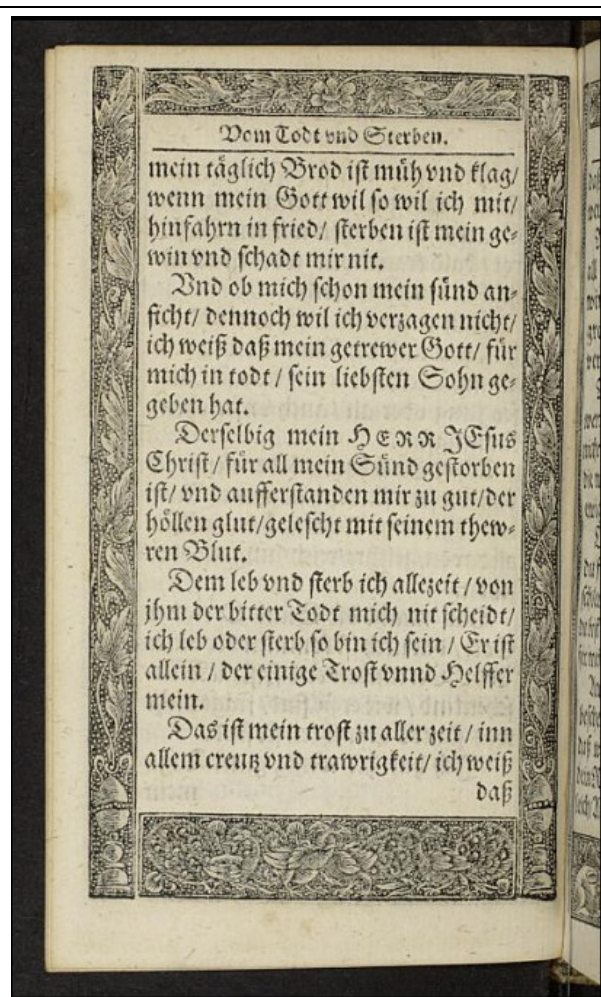 Vom Todt vnd Sterben.
mein täglich Brod ist müh vnd klag/
wenn mein Gott wil so wil ich mit/
hinfahrn in fried/ sterben ist mein ge⸗
win vnd schadt mir nit.
Vnd ob mich schon mein sünd an⸗
ficht/ dennoch wil ich verzagen nicht/
ich weiß daß mein getrewer Gott/ für
mich in todt / sein liebsten Sohn ge⸗
geben hat.
Derselbig mein HERR JEsus
Christ/ für all mein Sünd gestorben
ist/ vnd aufferstanden mir zu gut/der
höllen glut/gelescht mit seinem thew⸗
ren Blut.
Dem leb vnd sterb ich allezeit / von
jhm der bitter Todt mich nit scheidt/
ich leb oder sterb so bin ich sein / Er ist
allein / der einige Trost vnnd Helffer
mein.
Das ist mein trost zu aller zeit / inn
allem creutz vnd trawrigkeit/ ich weiß
daß